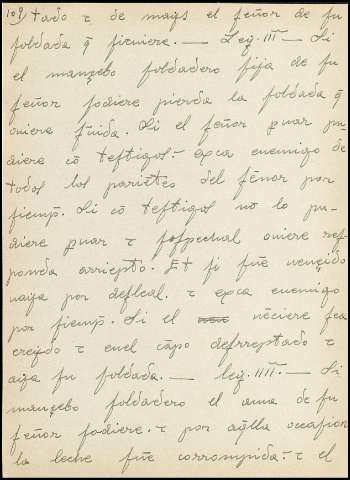 109) tado τ de mays el ſeñor de ſu
ſoldada q̃ ſiruiere. — Leỹ. IIII — Si
el mançebo ſoldadero fija de ſu
ſeñor fodiere pierda la ſoldada q̃
ouiere ſuida. Si el ſeñor puar pu-
diere cõ teſtigos: exca enemigo de
todos los pariẽtes del ſeñor por
ſiemp̃. Si cõ teſtigos no lo pu-
diere puar τ ſoſpechal ouiere reſ-
ponda arriepto. Et ſi fuẽ vençido
vaya por deſleal. τ exca enemigo
por ſiemp̃. Si el vẽciere ſea
creydo τ enel cãpo deſrreptado τ
aya ſu ſoldada. — leỹ. IIII. — Si
mançebo ſoldadero el ama de ſu
ſeñor fodiere. τ por aq̃lla occaſion
la leche fuẽ corrompida. τ el